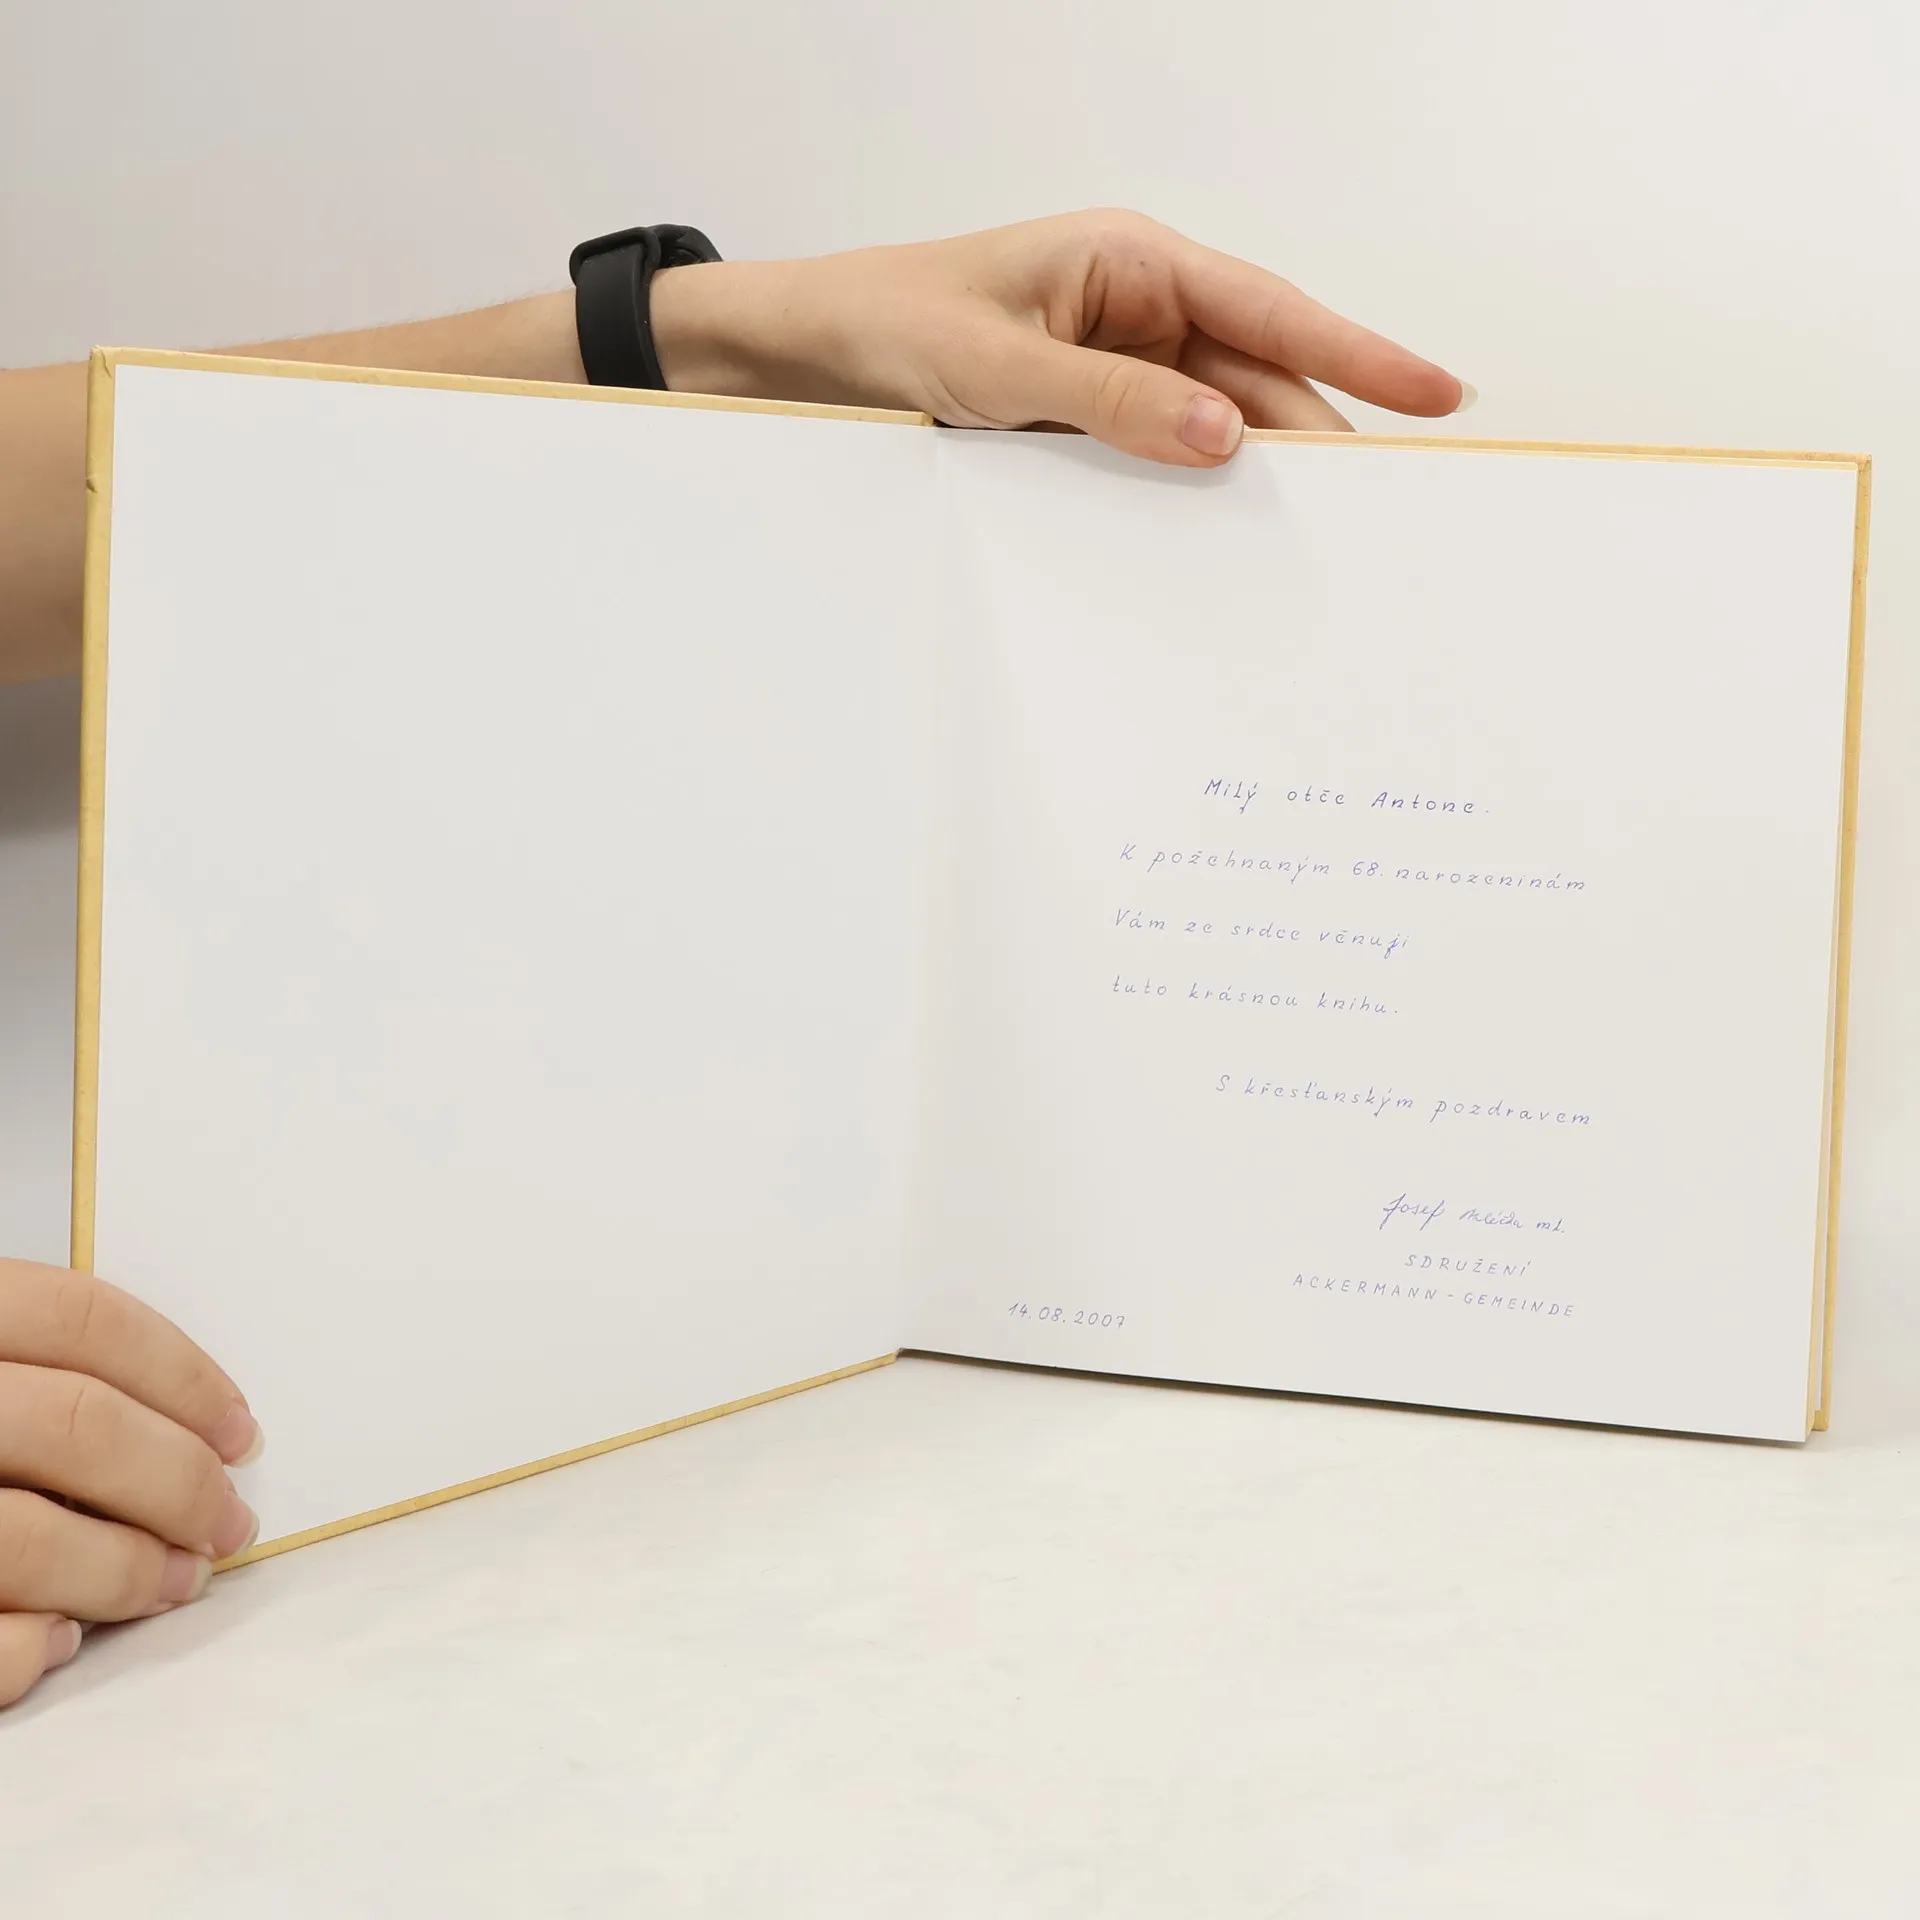 Milý otče Antone.
K požehnaným 68. narozeninám
Vám ze srdce věnuji
tuto krásnou knihu.
S křesťanským pozdravem
Josef ml.
SDRUŽENÍ
ACKERMANN-GEMEINDE
14.08.2007